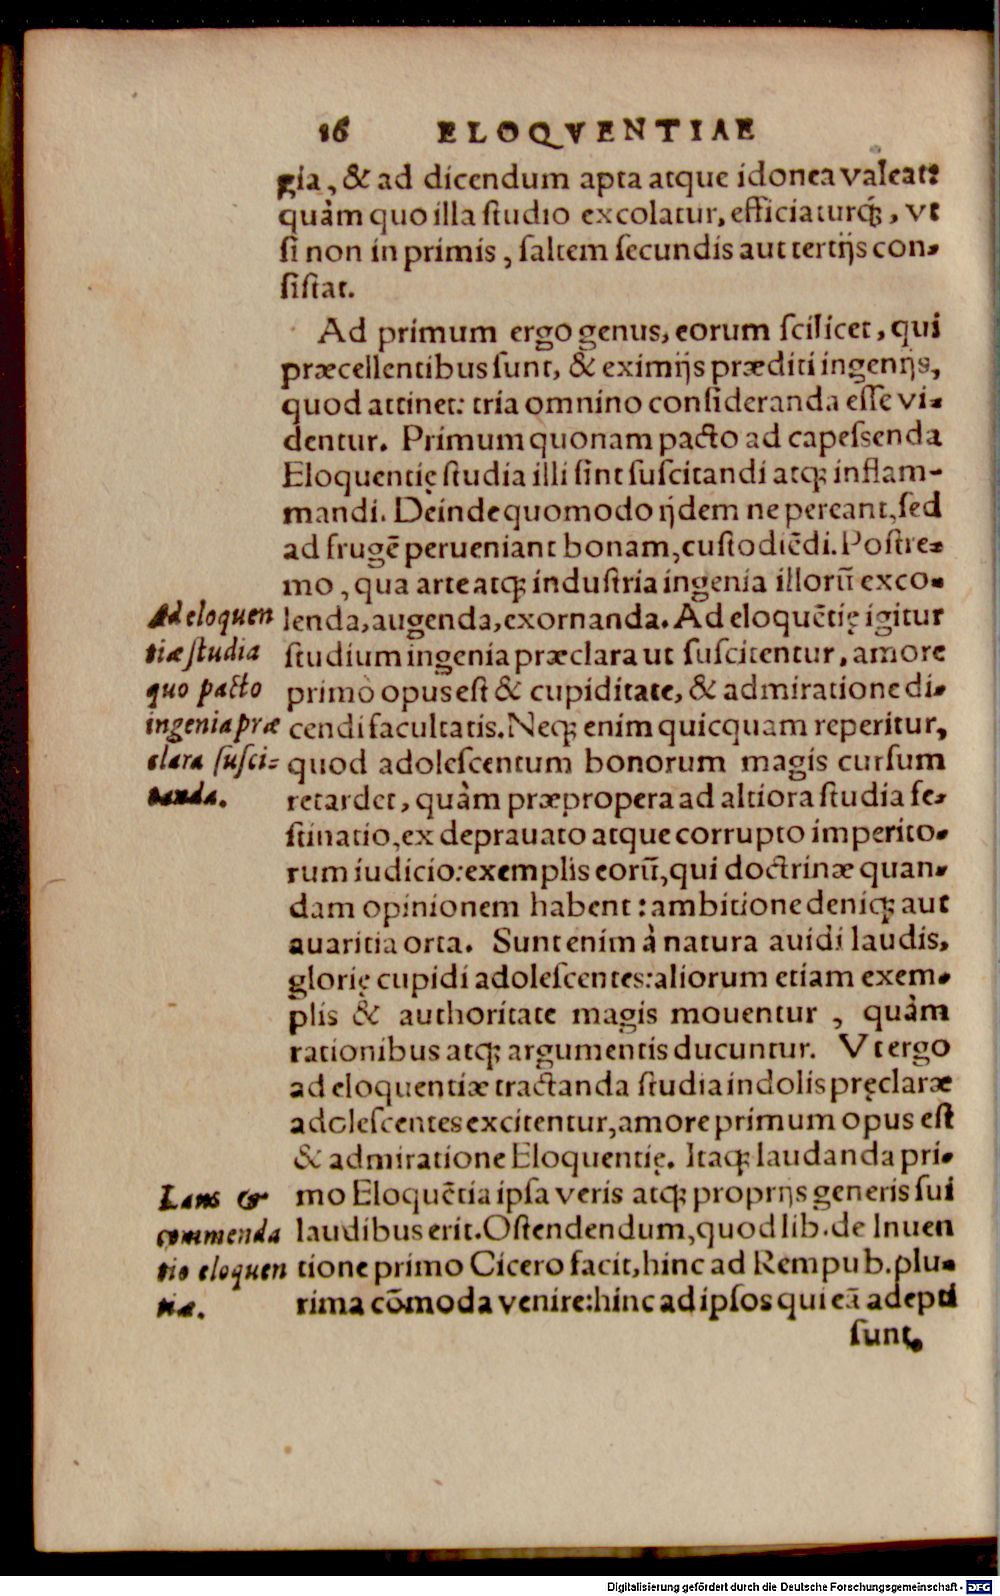 16 ELOQVENTIAE
gia, & ad dicendum apta atque idonea valeat:
quàm quo illa ſtudio excolatur, efficiaturq́;, vt
ſi non in primis, ſaltem ſecundis aut tertijs con-
ſiſtat.
Ad primum ergo genus, eorum ſcilicet, qui
præcellentibus ſunt, & eximijs præditi ingenijs,
quod attinet: tria omnino conſideranda eſſe vi-
dentur. Primum quonam pacto ad capeſsenda
Eloquentię ſtudia illi ſint ſuſcitandi atq; inflam-
mandi. Deinde quomodo ijdem ne pereant, ſed
ad frugẽ perueniant bonam, cuſtodiẽdi. Poſtre-
mo, qua arte atq; induſtria ingenia illorũ exco-
lenda, augenda, exornanda. Ad eloquẽtię igitur
ſtudium ingenia præclara ut ſuſcitentur, amore
primò opus eſt & cupiditate, & admiratione di-
cendi facultatis. Neq; enim quicquam reperitur,
quod adoleſcentum bonorum magis curſum
retardet, quàm præpropera ad altiora ſtudia fe-
ſtinatio, ex deprauato atque corrupto imperito-
rum iudicio: exemplis eorũ, qui doctrinæ quan-
dam opinionem habent: ambitione deniq; aut
auaritia orta. Sunt enim à natura auidi laudis,
glorię cupidi adoleſcentes: aliorum etiam exem-
plis & authoritate magis mouentur, quàm
rationibus atq; argumentis ducuntur. Vt ergo
ad eloquentiæ tractanda ſtudia indolis pręclaræ
adoleſcentes excitentur, amore primum opus eſt
& admiratione Eloquentię. Itaq; laudanda pri-
mo Eloquẽtia ipſa veris atq; proprijs generis ſui
laudibus erit. Oſtendendum, quod lib. de Inuen
tione primo Cicero facit, hinc ad Rempub. plu-
rima cõmoda venire: hinc ad ipſos qui eã adepti
ſunt,
Ad eloquen
tiæ ſtudia
quo pacto
ingenia præ
clara ſuſci-
tanda.
Laus &
commenda
tio eloquen
tiæ.
Digitalisierung gefördert durch die Deutsche Forschungsgemeinschaft - DFG